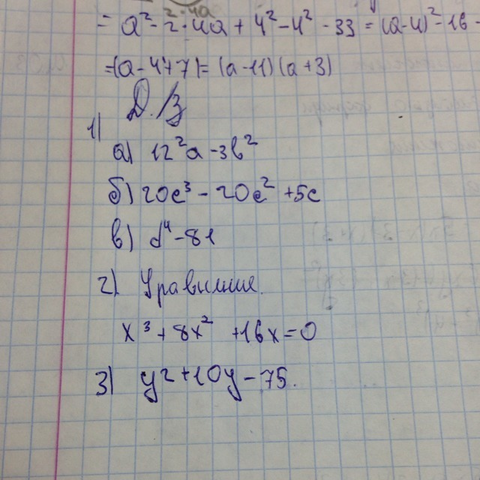 = a² - 2·4a + 4² - 4² - 33 = (a-4)² - 16 -
=(a-4+7)= (a-11)(a+3)
Д./з
1)
а) 12²a - 3b²
б) 20c³ - 20c² + 5c
в) d⁴ - 81
2) Уравнение.
x³ + 8x² + 16x = 0
3) y² + 10y - 75.